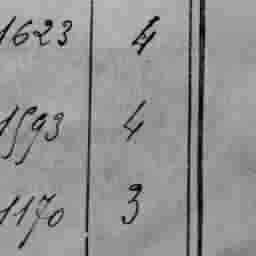 1623 4
1593 4
1170 3